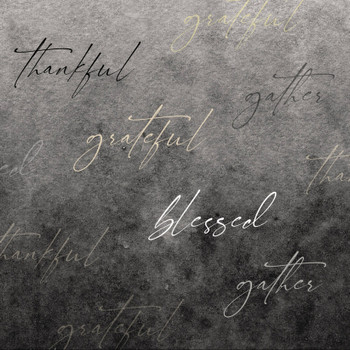 grateful
thankful
gather
grateful
thankful
blessed
thankful
gather
grateful